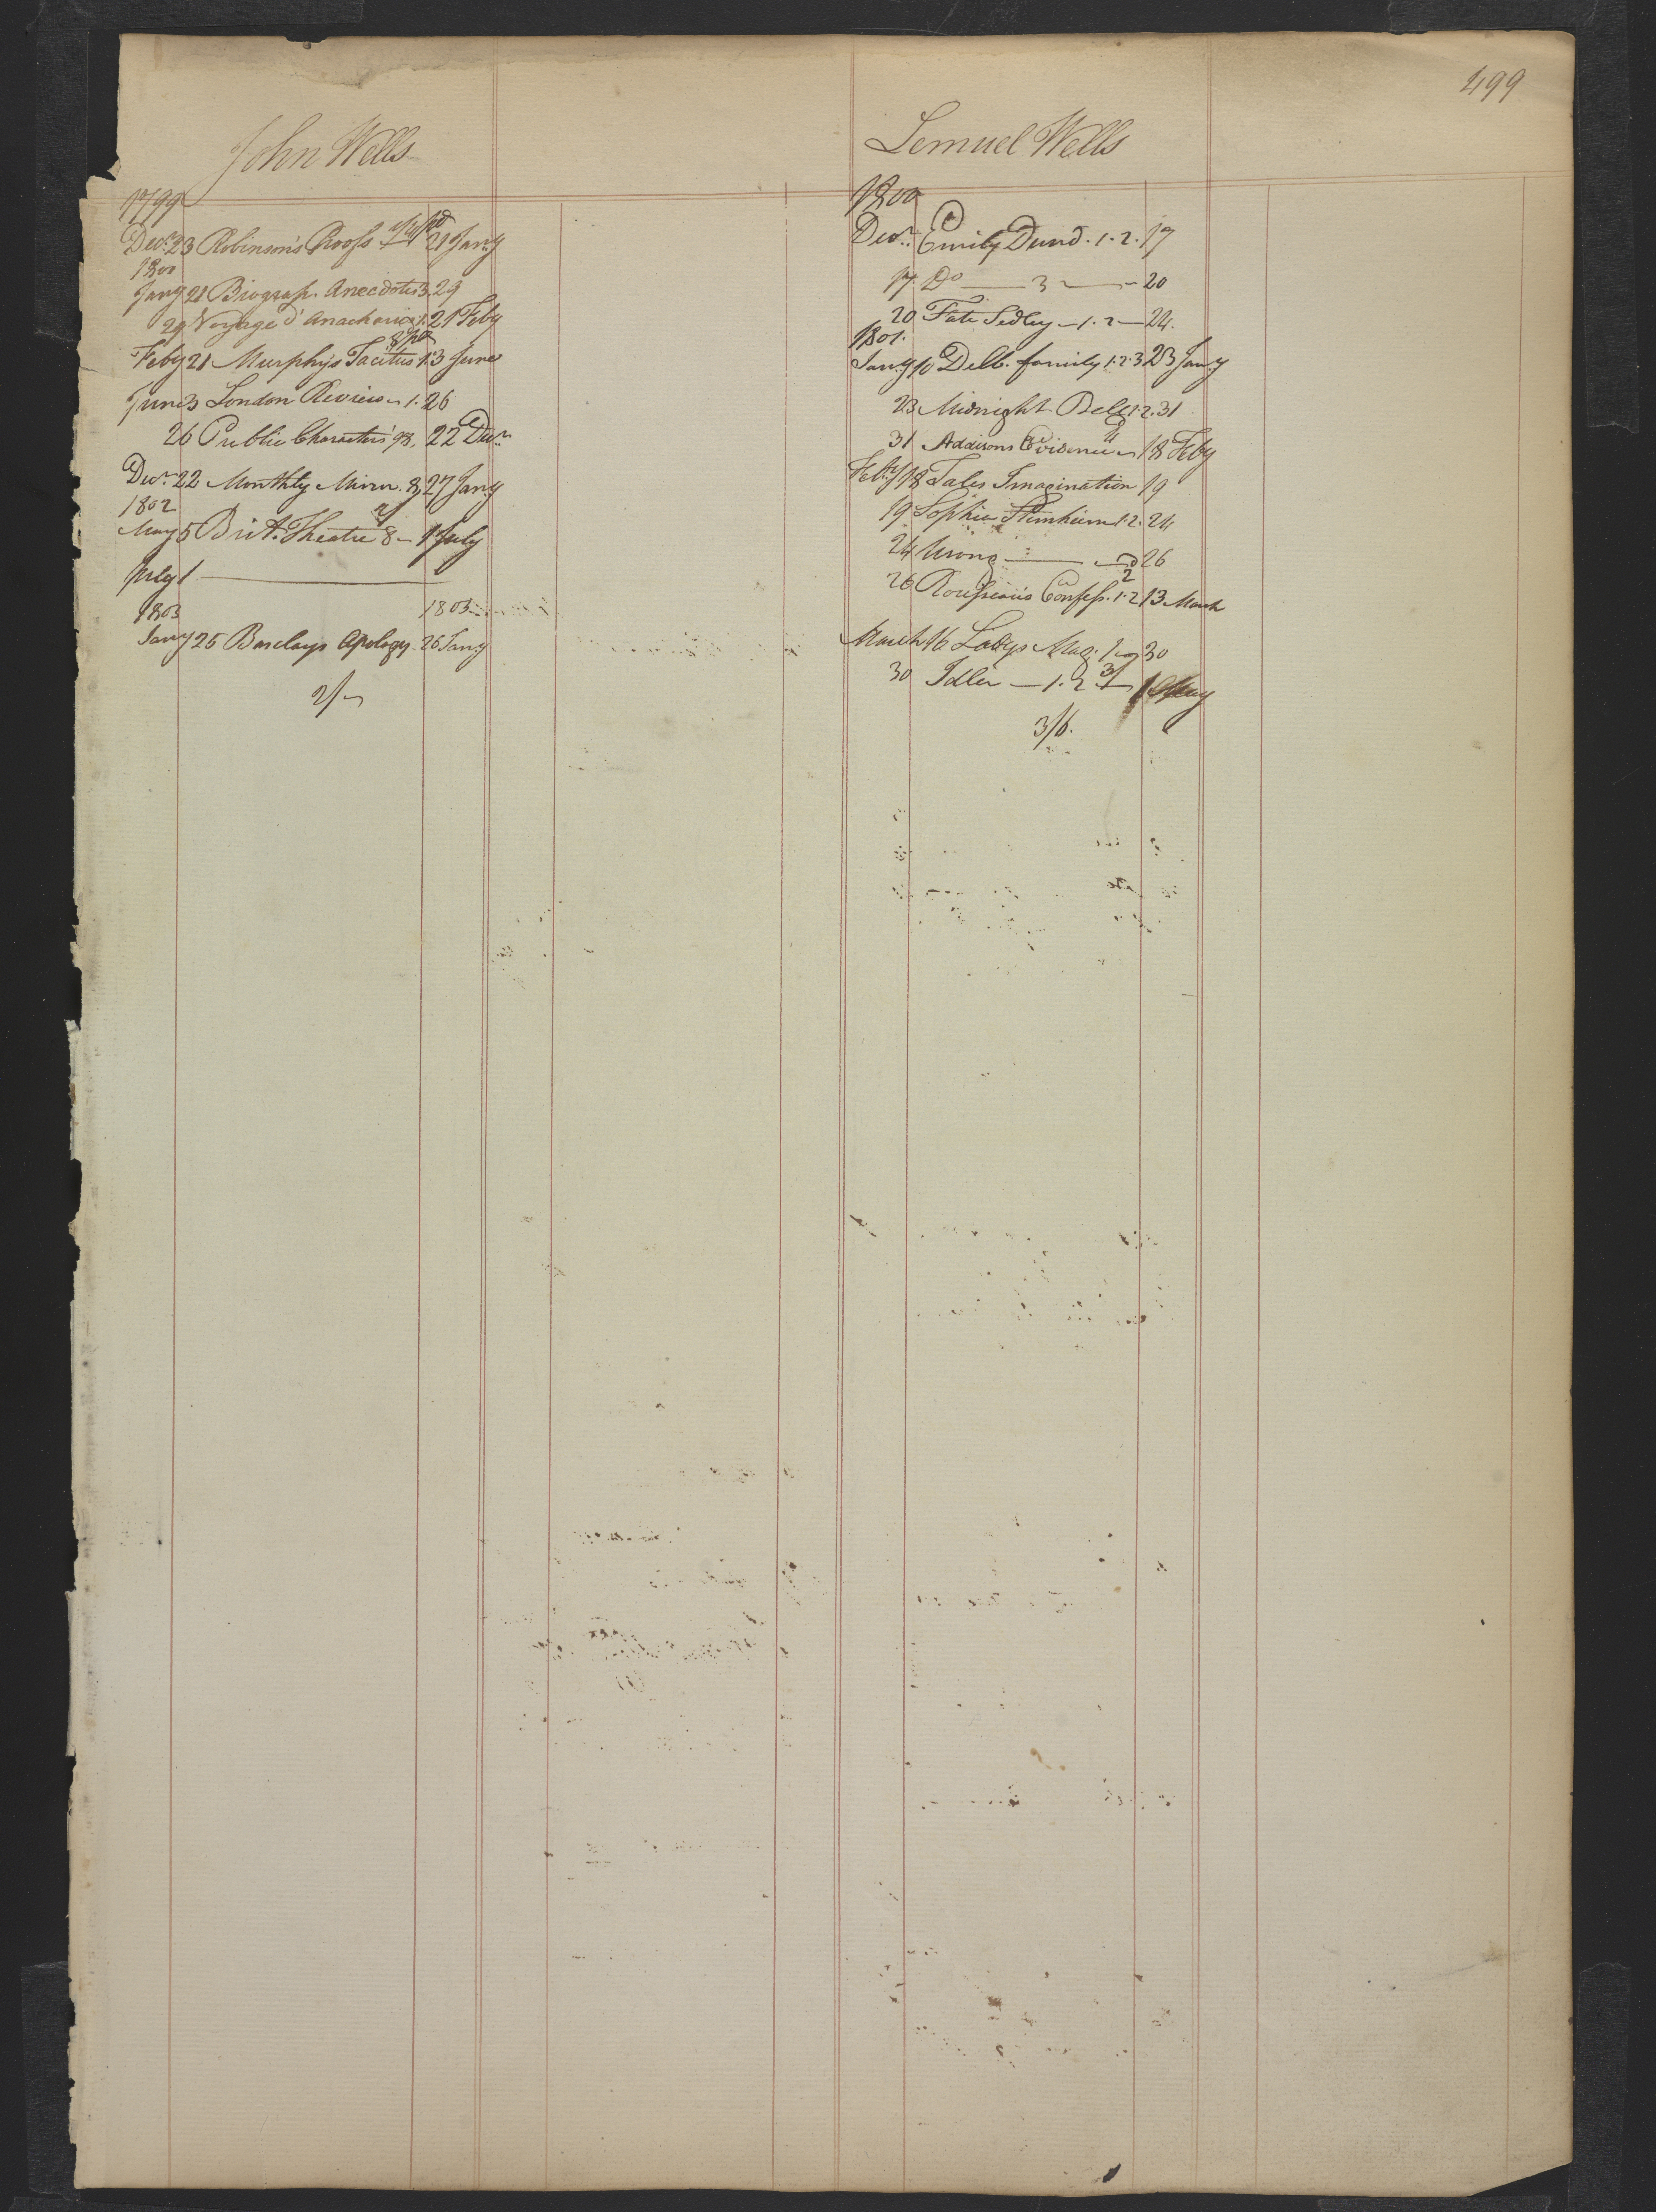 499
John Wells
1799
Decr. 23 Robinson's Proofs 21 Jany
1800
Jany 21 Biograp. Anecdotes 3. 29
29 Voyage d'Anacharsis 1. 21 Feby
Feby 21 Murphys Tacitus 1. 3 June
June 3 London Review 1. 26
26 Public Characters 98. 22 Decr.
Decr. 22 Monthly Mirror. 8 27 Jany
1802
May 5 Brit. Theatre 8 1 July
July 1
1803 1803
Jany 25 Barclays Apology. 26 Jany
2/
Lemuel Wells
1800
Decr. Emily Dund. 1. 2. 17
17 Do 3 20
20 Fate Sedley 1. 2 24.
1801.
Jany 10 Dellb. family 1. 2. 3 23 Jany
23 Midnight Bell 1. 2. 31
31 Addisons Evidences 18 Feby
Feby 18 Tales Imagination 19
19 Sophia Sternheim 1. 2. 24
24 Wrong 26
26 Rousseau's Confess. 1. 2 13 March
March 16 Ladys Mag. 1 30
30 Idler 1. 2 1 May
3/6.